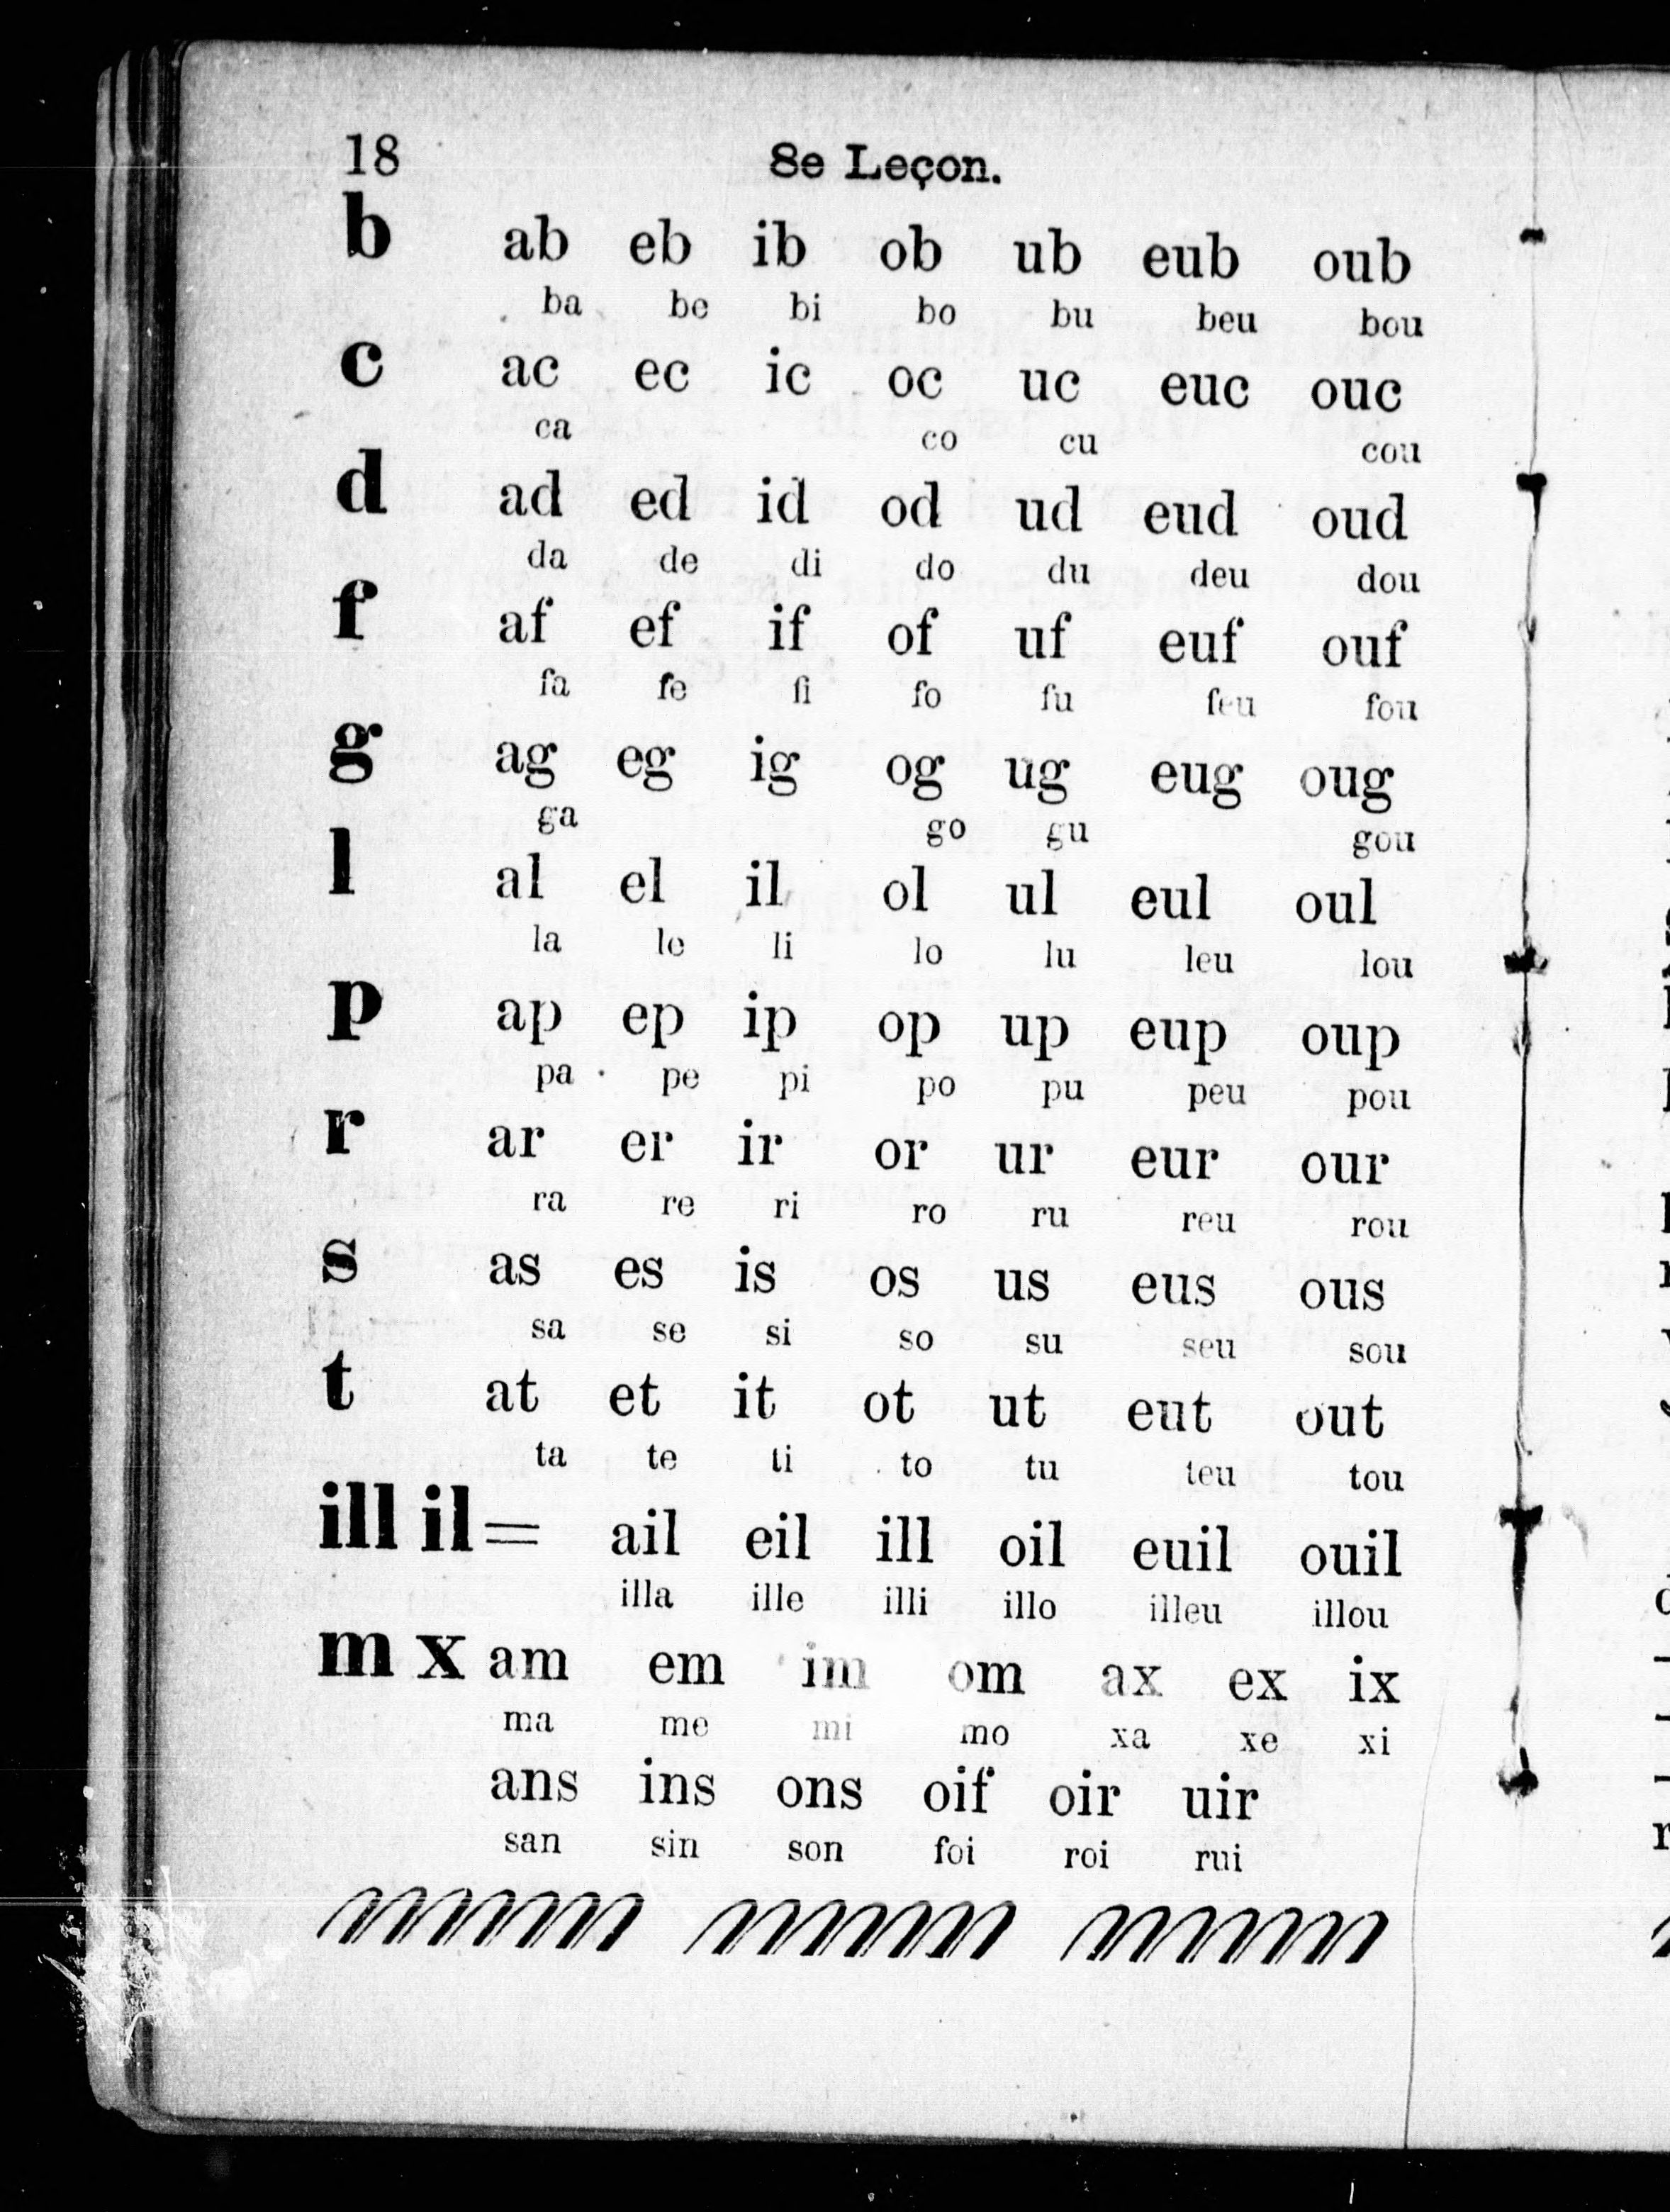 18 8e Leçon.
b ab eb ib ob ub eub oub
ba be bi bo bu beu bou
c ac ec ic oc uc euc ouc
ca co cu cou
d ad ed id od ud eud oud
da de di do du deu dou
f af ef if of uf euf ouf
fa fe fi fo fu feu fou
g ag eg ig og ug eug oug
ga go gu gou
l al el il ol ul eul oul
la le li lo lu leu lou
p ap ep ip op up eup oup
pa pe pi po pu peu pou
r ar er ir or ur eur our
ra re ri ro ru reu rou
s as es is os us eus ous
sa se si so su seu sou
t at et it ot ut eut out
ta te ti to tu teu tou
ill il= ail eil ill oil euil ouil
illa ille illi illo illeu illou
m x am em im om ax ex ix
ma me mi mo xa xe xi
ans ins ons oif oir uir
san sin son foi roi rui